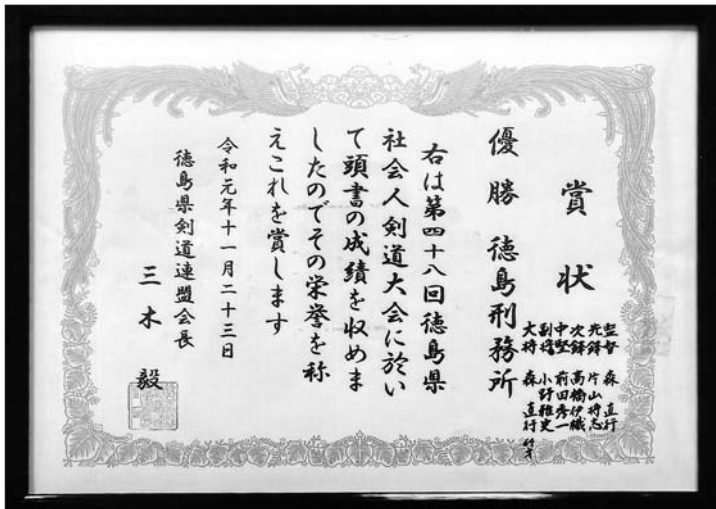 賞状
監督 森 直行
先鋒 片山将志
次鋒 高橋伊織
中堅 前田秀一
副将 小野雅史
大将 森 直行
優勝 徳島刑務所
右は第四十八回徳島県
社会人剣道大会に於い
て頭書の成績を収めま
したのでその栄誉を称
えこれを賞します
令和元年十一月二十三日
徳島県剣道連盟会長
三木 毅